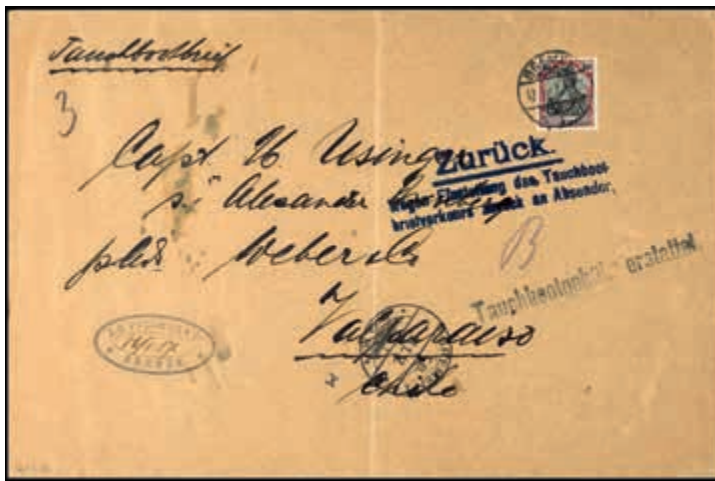 Tauchbootbrief
3
Capt. H Usinger
Zurück.
Wegen Einstellung des Tauchboot-
briefverkehrs zurück an Absender.
s/ Alexander
B
Weber & Co
Tauchbootgebühr erstattet
Valparaiso
14/1.17
BREMEN
Chile